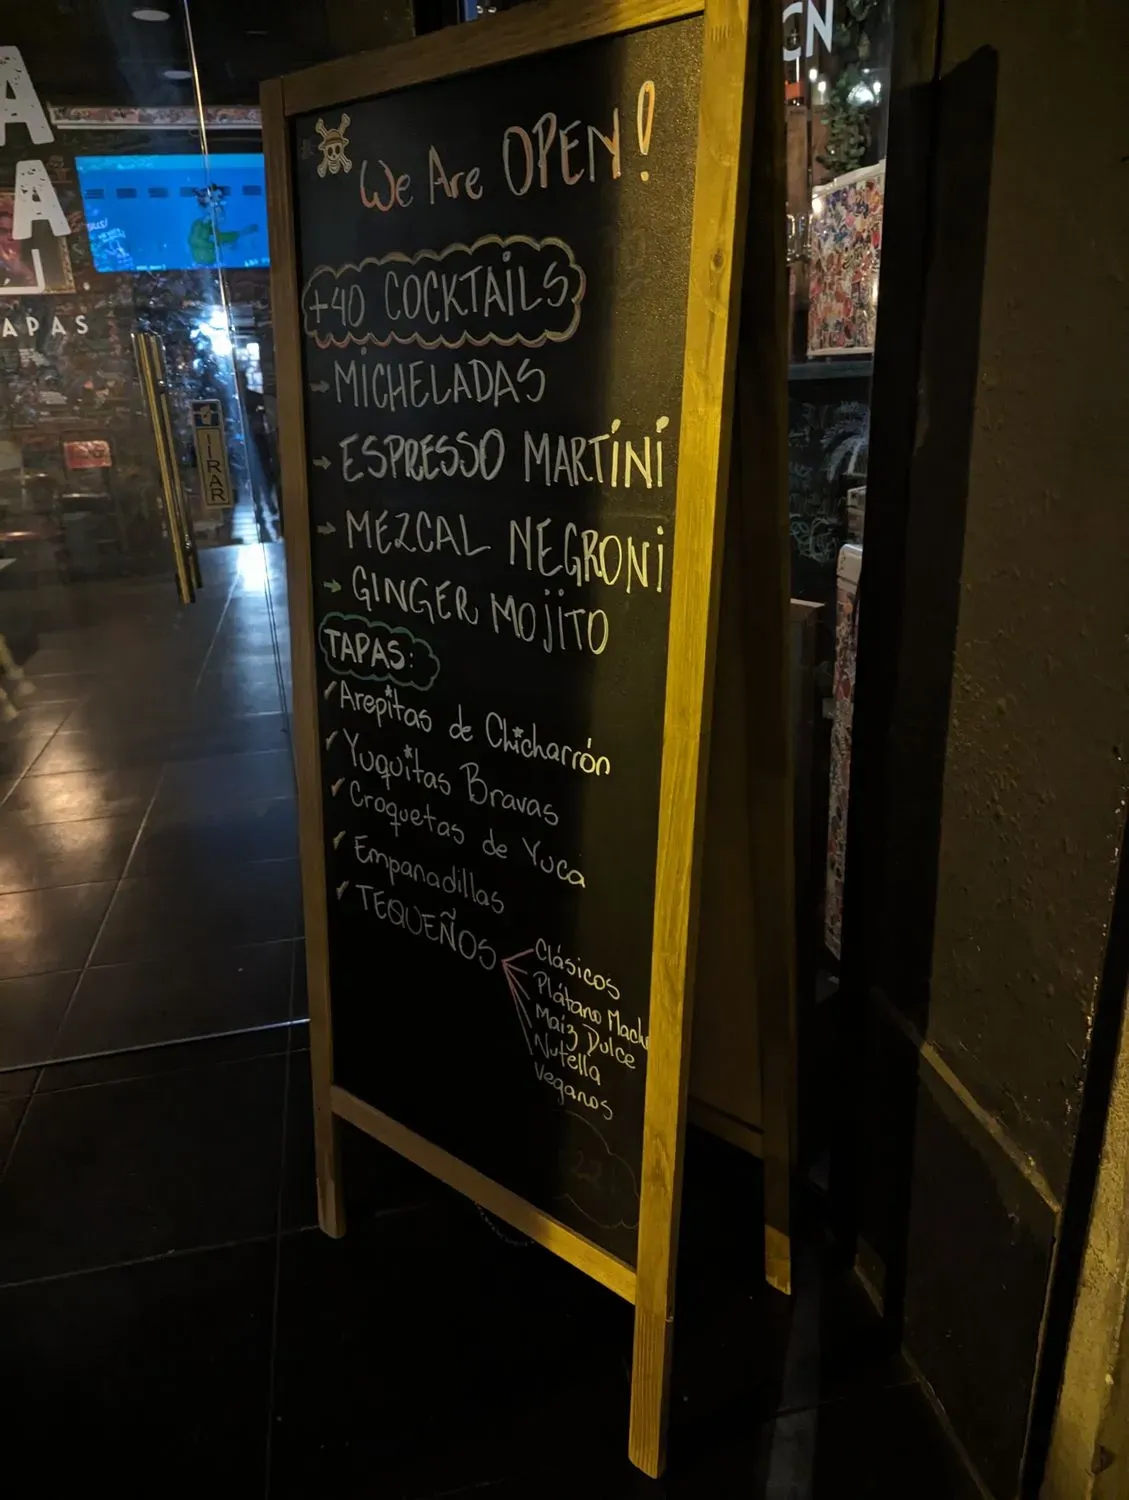 We Are OPEN!
+40 COCKTAILS
→ MICHELADAS
→ ESPRESSO MARTINI
→ MEZCAL NEGRONI
→ GINGER MOJITO
TAPAS:
✓ Arepitas de Chicharrón
✓ Yuquitas Bravas
✓ Croquetas de Yuca
✓ Empanadillas
✓ TEQUEÑOS
Clásicos
Plátano
Maíz Dulce
Nutella
Veganos
APAS
TIRAR
CN